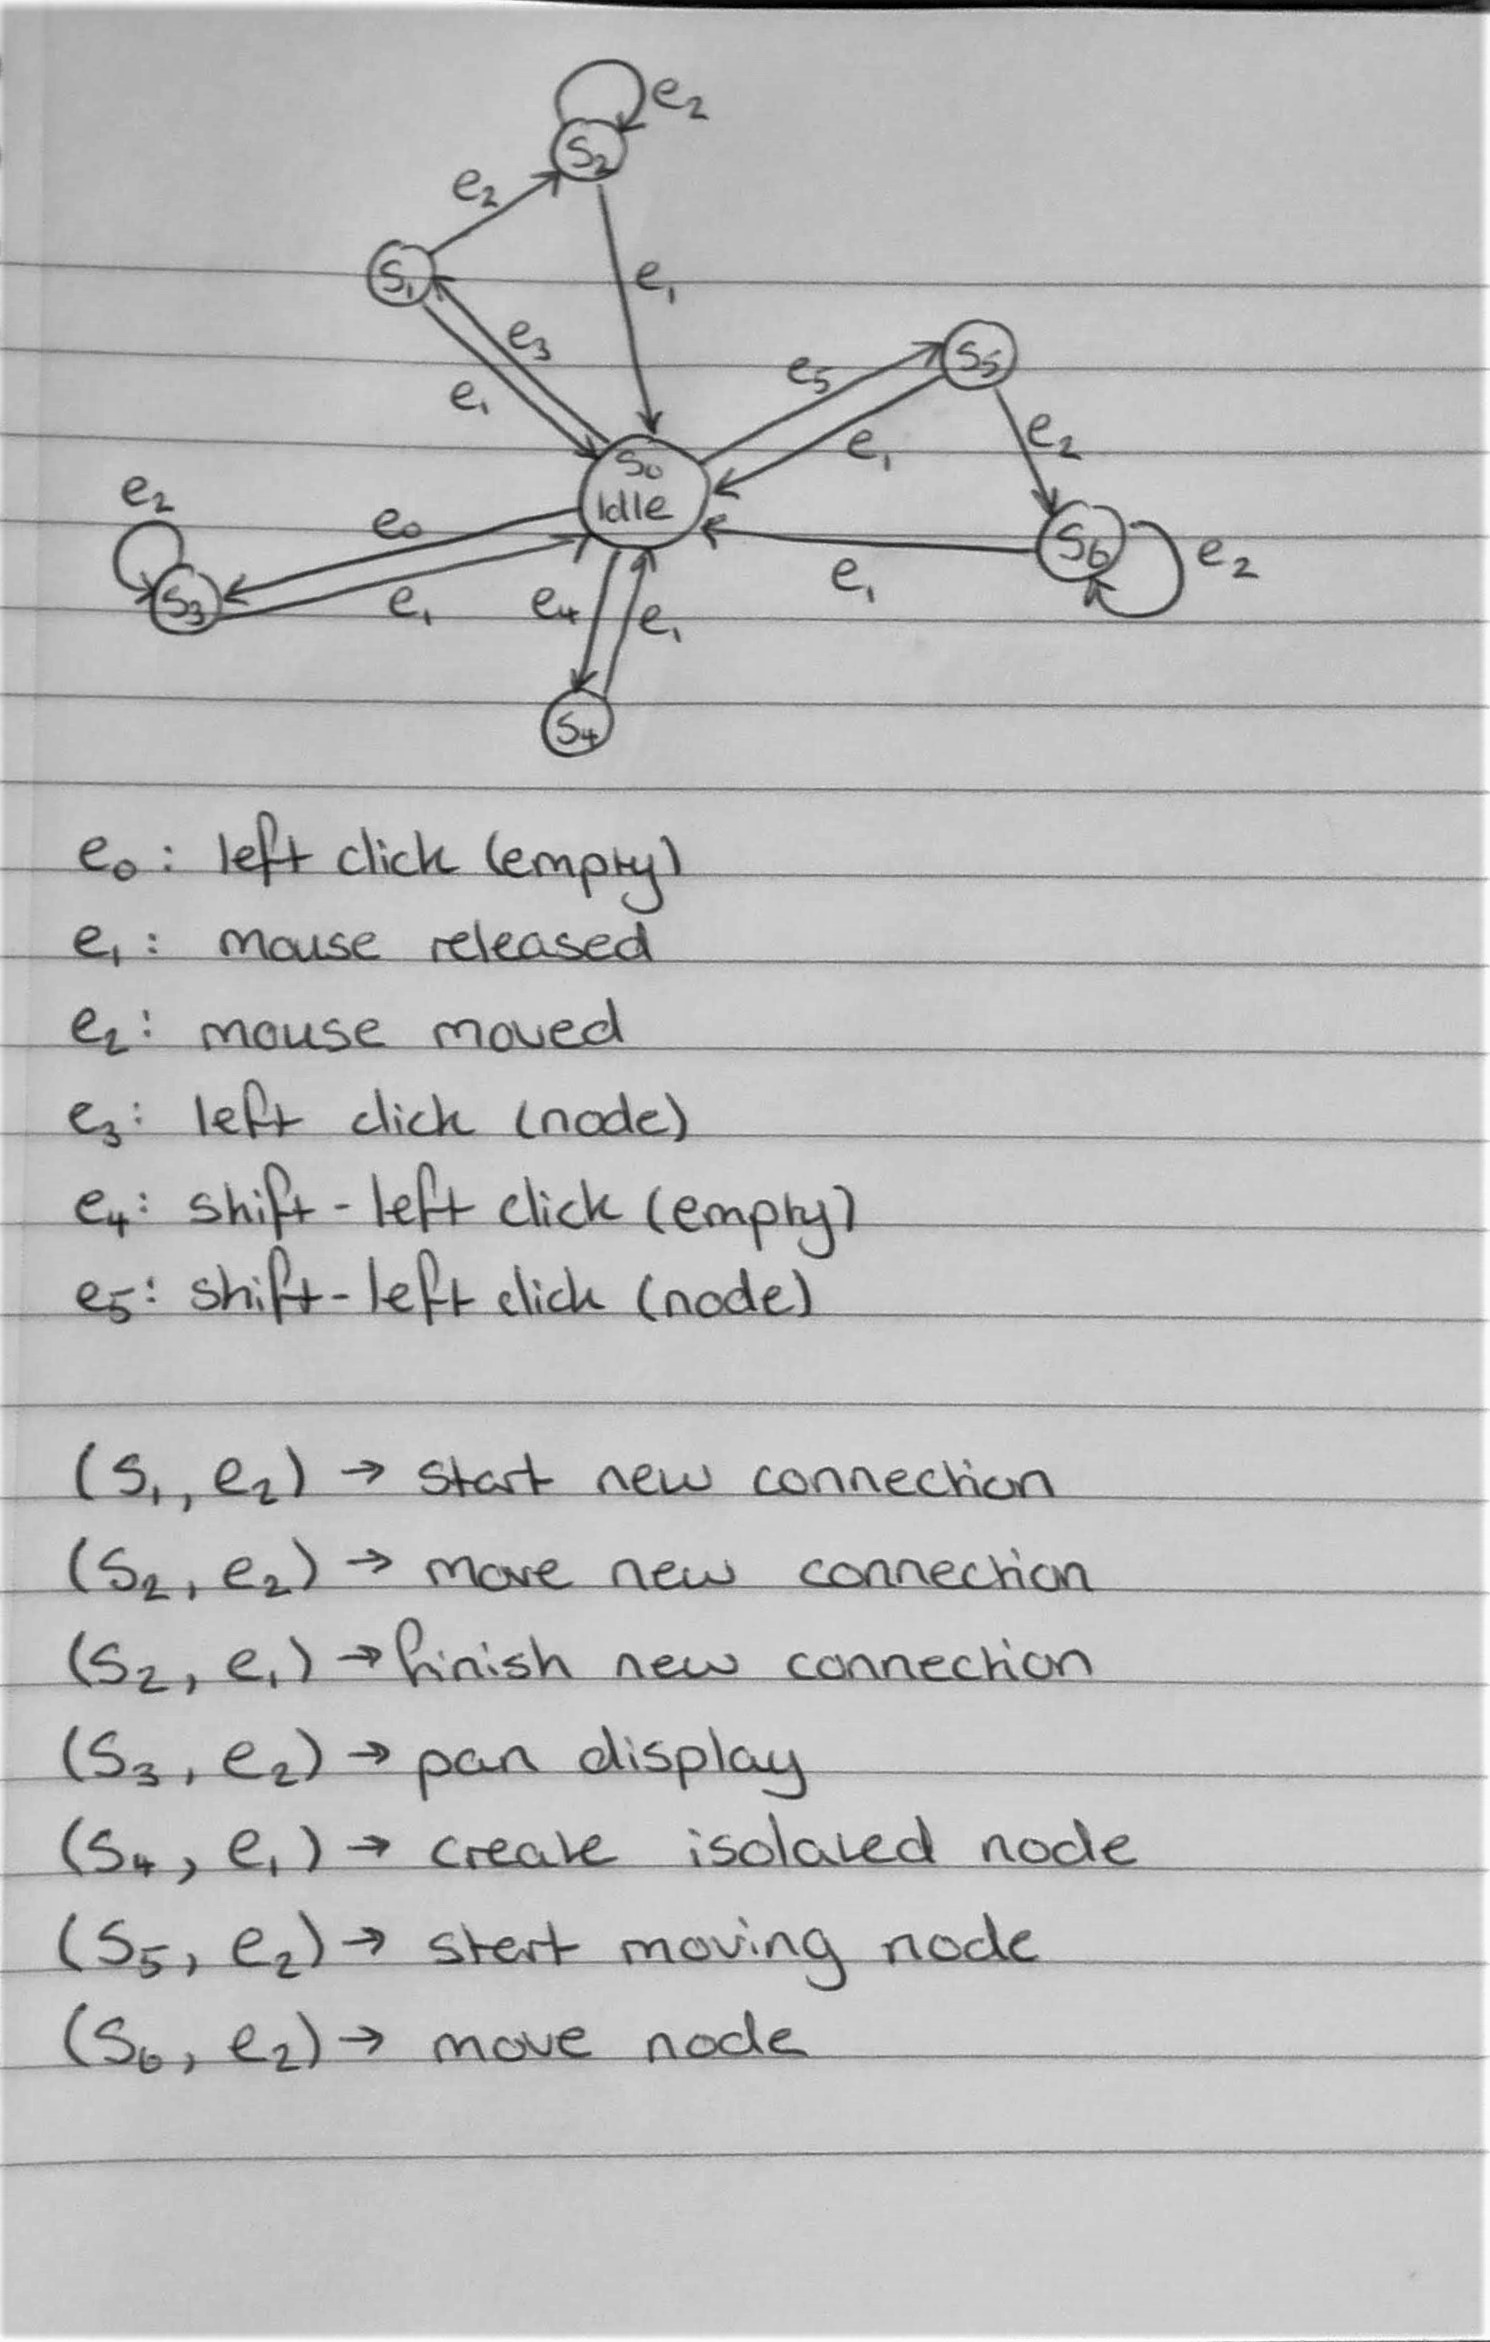 e₂
S₂
e₂
S₁
e₁
e₃
e₁
e₅
S₅
e₁
e₂
S₀
Idle
e₂
e₀
S₆
e₂
e₁
S₃
e₁
e₄
e₁
S₄
e₀: left click (empty)
e₁: mouse released
e₂: mouse moved
e₃: left click (node)
e₄: shift-left click (empty)
e₅: shift-left click (node)
(S₁, e₂) → start new connection
(S₂, e₂) → move new connection
(S₂, e₁) → finish new connection
(S₃, e₂) → pan display
(S₄, e₁) → create isolated node
(S₅, e₂) → start moving node
(S₆, e₂) → move node